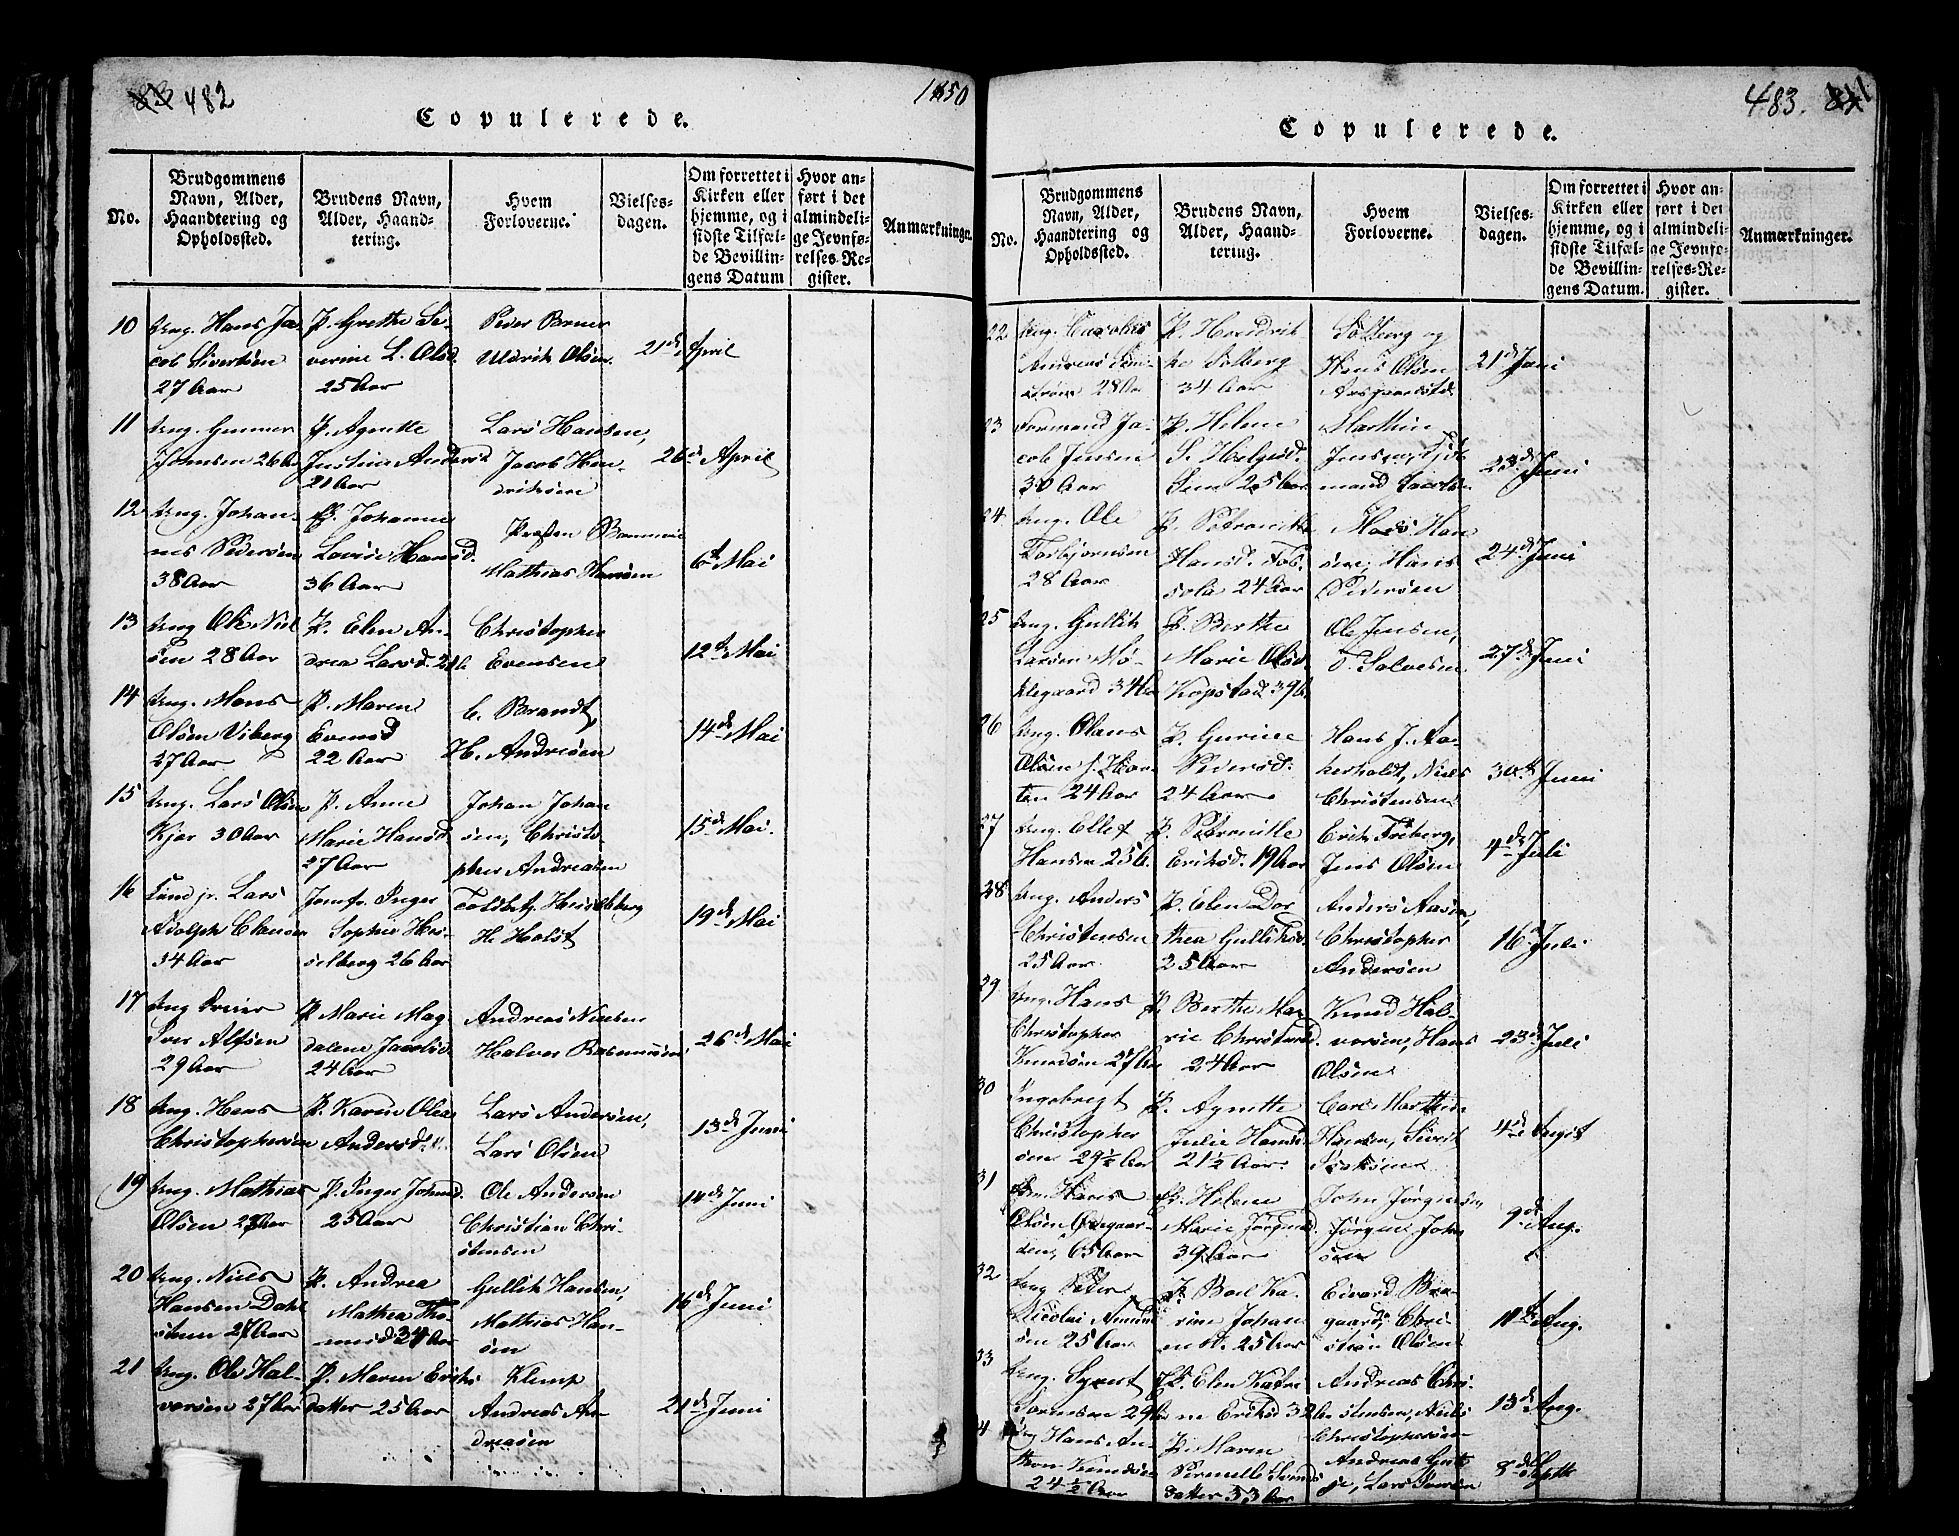 482
1850
Copulerede.
No.
Brudgommens
Navn, Alder,
Haandtering og
Opholdssted.
Brudens Navn,
Alder, Haand-
tering.
Hvem
Forloverne.
Vielses-
dagen.
Om forrettet i
Kirken eller
hjemme, og i
sidste Tilfæl-
de Bevillin-
gens Datum
Hvor an-
ført i det
almindeli-
ge Jevnfø-
relses-Re-
gister.
Anmærkninger.
10
Ung. Hans Ja-
cob Sivertsen
27 Aar
P. Grethe Se-
verine L. Olsd.
25 Aar
Peder Berner
Uldrik Olsen
21de April
11
Ung. Gunner
Johnsen 26 Aar
P. Agnethe
Justine Andersd
21 Aar
Lars Hansen,
Jacob Hen-
driksen
26de April
12
Ung. Johan-
nes Pedersen
38 Aar
P. Johanne
Lovise Hansd.
36 Aar
Mathias Hansen
6te Mai
13
Ung Ole Niel
sen 28 Aar
P. Elen An-
drea Larsd. 21 A.
Christopher
Evensen
12te Mai
14
Ung. Mons
Olsen Viberg
27 Aar
P. Maren
Evensd
22 Aar
C. Brandt,
H. Andresen
14de Mai
15
Ung. Lars Olsen
Kjær 30 Aar
P. Anne
Marie Hansd.
27 Aar
Johan Johan
sen, Christo-
pher Andreasen
15de Mai.
16
Lars
Adolph Clausen
34 Aar
Jomfr. Inger
Sophie Hes-
selberg 26 Aar
Toldbetj. Hesselberg
H. Holst
19de Mai
17
Ung
Iver Alfsen
29 Aar
P. Marie Mag
dalene Jacobsd.
24 Aar
Andreas Nielsen
Halvor Rasmussen
26de Mai
18
Ung. Hans
Christophersen
P. Karen Olea
Andersd.
Lars Andersen,
Lars Olsen
13de Juni
19
Ung. Mathias
Olsen 28 Aar
P. Inger Johnsd.
25 Aar
Ole Andersen
Christian Chri-
stensen
14de Juni
20
Ung. Niels
Hansen Dahl
27 Aar
P. Andrea
Mathea Tho-
mesd 34 Aar
Gullik Hansen,
Mathias Han-
sen
16de Juni
21
Ung. Ole Hal-
vorsen 27 Aar
P. Maren Eriks
datter 25 Aar
Klemp
Andreas An
dreasen
21de Juni
483.
Copulerede.
No.
Brudgommens
Navn, Alder,
Haandtering og
Opholdssted.
Brudens Navn,
Alder, Haand-
tering.
Hvem
Forloverne.
Vielses-
dagen.
Om forrettet i
Kirken eller
hjemme, og i
sidste Tilfæl-
de Bevillin-
gens Datum.
Hvor an-
ført i det
almindeli-
ge Jevnfø-
relses-Re-
gister.
Anmærkninger.
22
Ung. Carolus
Andreas
28 Aar
P. Hendrik
ke Solberg
34 Aar
Solberg og
Hans Olsen
21de Juni
23
Formand Ja-
cob Jensen
30 Aar
P. Helene
S. Helgesd.
Sem 25 Aar
Mathin
23de Juni
24
Ung. Ole
Torbjørnsen
28 Aar
P. Petronille
Hansd. Fos-
sola 24 Aar
Mads Han
sen, Hans
Pedersen
24de Juni
25
Ung. Gullik
Larsen Mø-
klegaard 34 Aar
P. Berthe
Marie Olsd.
Kopstad 39 A.
Ole Jensen,
T. Salvesen
27de Juni
26
Ung. Olaus
Olsen f. Hor-
ten 24 Aar
P. Gurine
Pedersd.
24 Aar
Hans J. Aa-
kerholdt, Niels
Christensen
30te Juni
27
Ung. Ellef
Hansen 25 A.
P. Petronille
Eriksd. 19 Aar
Erik Freberg,
Jens Olsen
4de Juli
28
Ung. Anders
Christensen
25 Aar.
P. Elen Dor
thea Gulliksd.
25 Aar
Anders Aasen,
Christopher
Andersen
16de Juli
29
Ung. Hans
Christopher
Knudsen 27 Aar
P. Berthe Ma-
rie Christensd.
24 Aar
Knud Hal-
vorsen, Hans
Olsen
23de Juli
30
Ingebregt
Christopher
sen 29½ Aar
P. Agnethe
Julie Hansd.
21½ Aar
Carl Marthin
Hansen, Sivert
4de Augst
31
Em. Hans
Olsen Ødegaar-
den, 65 Aar
P. Helene
Marie Jørgensd.
39 Aar
John Jørgensen,
Jørgen John
sen
9de Aug.
32
Ung Peder
Nicolai Amund
sen 25 Aar
P. Boel Ka-
rine Johan
nesd. 25 Aar
Edvard Bre-
gaard, Chri-
stian Olsen
11te Aug.
33
Ung. Syvert
29 Aar
P. Elen Kathri
ne Eriksd 32 Aar
Andreas Chri-
stensen, Niels
Christophersen
13de Aug.
34
Ung Hans An-
thon Knudsen
24½ Aar
P. Maren
Pernille Svends
datter 33 Aar
Andreas
Lars Iversen
8de Septb